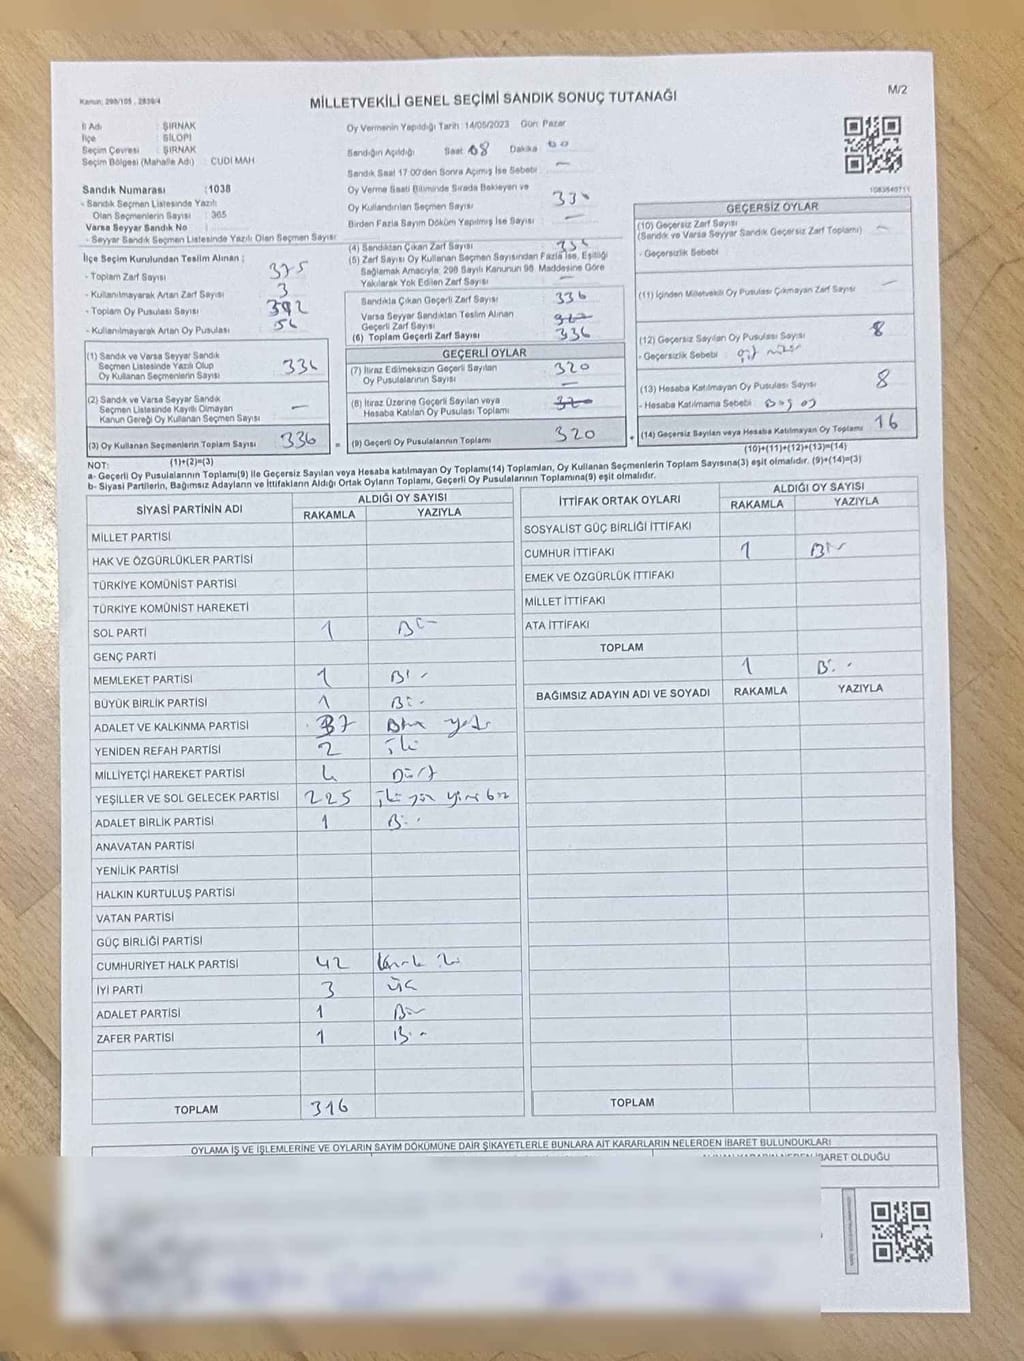 Kanun: 298/105 , 2839/4
MİLLETVEKİLİ GENEL SEÇİMİ SANDIK SONUÇ TUTANAĞI
M/2
İl Adı : ŞIRNAK
İlçe : SİLOPİ
Seçim Çevresi : ŞIRNAK
Seçim Bölgesi (Mahalle Adı) : CUDİ MAH
Sandık Numarası :1038
- Sandık Seçmen Listesinde Yazılı
Olan Seçmenlerin Sayısı : 365
Varsa Seyyar Sandık No
- Seyyar Sandık Seçmen Listesinde Yazılı Olan Seçmen Sayısı
İlçe Seçim Kurulundan Teslim Alınan ;
- Toplam Zarf Sayısı : 375
- Kullanılmayarak Artan Zarf Sayısı : 3
- Toplam Oy Pusulası Sayısı : 392
- Kullanılmayarak Artan Oy Pusulası : 56
(1) Sandık ve Varsa Seyyar Sandık
Seçmen Listesinde Yazılı Olup
Oy Kullanan Seçmenlerin Sayısı 336
(2) Sandık ve Varsa Seyyar Sandık
Seçmen Listesinde Kayıtlı Olmayan
Kanun Gereği Oy Kullanan Seçmen Sayısı —
(3) Oy Kullanan Seçmenlerin Toplam Sayısı 336
(1)+(2)=(3)
Oy Vermenin Yapıldığı Tarih : 14/05/2023 Gün: Pazar
Sandığın Açıldığı Saat 08 Dakika 00
Sandık Saat 17:00'den Sonra Açımış İse Sebebi —
Oy Verme Saati Bitiminde Sırada Bekleyen ve
Oy Kullandırılan Seçmen Sayısı
Birden Fazla Sayım Döküm Yapılmış İse Sayısı —
(4) Sandıktan Çıkan Zarf Sayısı
(5) Zarf Sayısı Oy Kullanan Seçmen Sayısından Fazla İse, Eşitliği
Sağlamak Amacıyla, 298 Sayılı Kanunun 98. Maddesine Göre
Yakılarak Yok Edilen Zarf Sayısı —
Sandıkta Çıkan Geçerli Zarf Sayısı 336
Varsa Seyyar Sandıktan Teslim Alınan
Geçerli Zarf Sayısı
(6) Toplam Geçerli Zarf Sayısı 336
GEÇERLİ OYLAR
(7) İtiraz Edilmeksizin Geçerli Sayılan
Oy Pusulalarının Sayısı 320
(8) İtiraz Üzerine Geçerli Sayılan veya
Hesaba Katılan Oy Pusulası Toplamı
= (9) Geçerli Oy Pusulalarının Toplamı 320
1083540711
GEÇERSİZ OYLAR
(10) Geçersiz Zarf Sayısı
(Sandık ve Varsa Seyyar Sandık Geçersiz Zarf Toplamı) —
- Geçersizlik Sebebi
(11) İçinden Milletvekili Oy Pusulası Çıkmayan Zarf Sayısı —
(12) Geçersiz Sayılan Oy Pusulası Sayısı 8
- Geçersizlik Sebebi :
(13) Hesaba Katılmayan Oy Pusulası Sayısı 8
- Hesaba Katılmama Sebebi
+ (14) Geçersiz Sayılan veya Hesaba Katılmayan Oy Toplamı 16
(10)+(11)+(12)+(13)=(14)
NOT:
a- Geçerli Oy Pusulalarının Toplamı(9) ile Geçersiz Sayılan veya Hesaba katılmayan Oy Toplamı(14) Toplamları, Oy Kullanan Seçmenlerin Toplam Sayısına(3) eşit olmalıdır. (9)+(14)=(3)
b- Siyasi Partilerin, Bağımsız Adayların ve İttifakların Aldığı Ortak Oyların Toplamı, Geçerli Oy Pusulalarının Toplamına(9) eşit olmalıdır.
SİYASİ PARTİNİN ADI ALDIĞI OY SAYISI
RAKAMLA YAZIYLA
MİLLET PARTİSİ
HAK VE ÖZGÜRLÜKLER PARTİSİ
TÜRKİYE KOMÜNİST PARTİSİ
TÜRKİYE KOMÜNİST HAREKETİ
SOL PARTİ 1 Bir
GENÇ PARTİ
MEMLEKET PARTİSİ 1 Bir
BÜYÜK BİRLİK PARTİSİ 1 Bir
ADALET VE KALKINMA PARTİSİ 37
YENİDEN REFAH PARTİSİ 2 iki
MİLLİYETÇİ HAREKET PARTİSİ 4 Dört
YEŞİLLER VE SOL GELECEK PARTİSİ 225 iki yüz yirmi beş
ADALET BİRLİK PARTİSİ 1 Bir
ANAVATAN PARTİSİ
YENİLİK PARTİSİ
HALKIN KURTULUŞ PARTİSİ
VATAN PARTİSİ
GÜÇ BİRLİĞİ PARTİSİ
CUMHURİYET HALK PARTİSİ 42 kırk iki
İYİ PARTİ 3 üç
ADALET PARTİSİ 1 Bir
ZAFER PARTİSİ 1 Bir
TOPLAM 316
İTTİFAK ORTAK OYLARI ALDIĞI OY SAYISI
RAKAMLA YAZIYLA
SOSYALİST GÜÇ BİRLİĞİ İTTİFAKI
CUMHUR İTTİFAKI 1 Bir
EMEK VE ÖZGÜRLÜK İTTİFAKI
MİLLET İTTİFAKI
ATA İTTİFAKI
TOPLAM 1 Bir
BAĞIMSIZ ADAYIN ADI VE SOYADI RAKAMLA YAZIYLA
TOPLAM
OYLAMA İŞ VE İŞLEMLERİNE VE OYLARIN SAYIM DÖKÜMÜNE DAİR ŞİKAYETLERLE BUNLARA AİT KARARLARIN NELERDEN İBARET BULUNDUKLARI
İBARET OLDUĞU